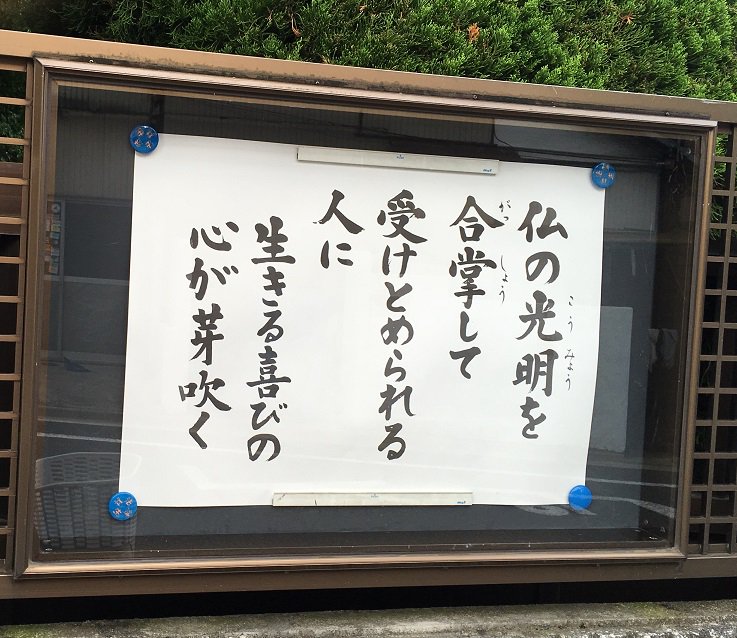 仏の光明を
こうみょう
合掌して
がっしょう
受けとめられる
人に
生きる喜びの
心が芽吹く